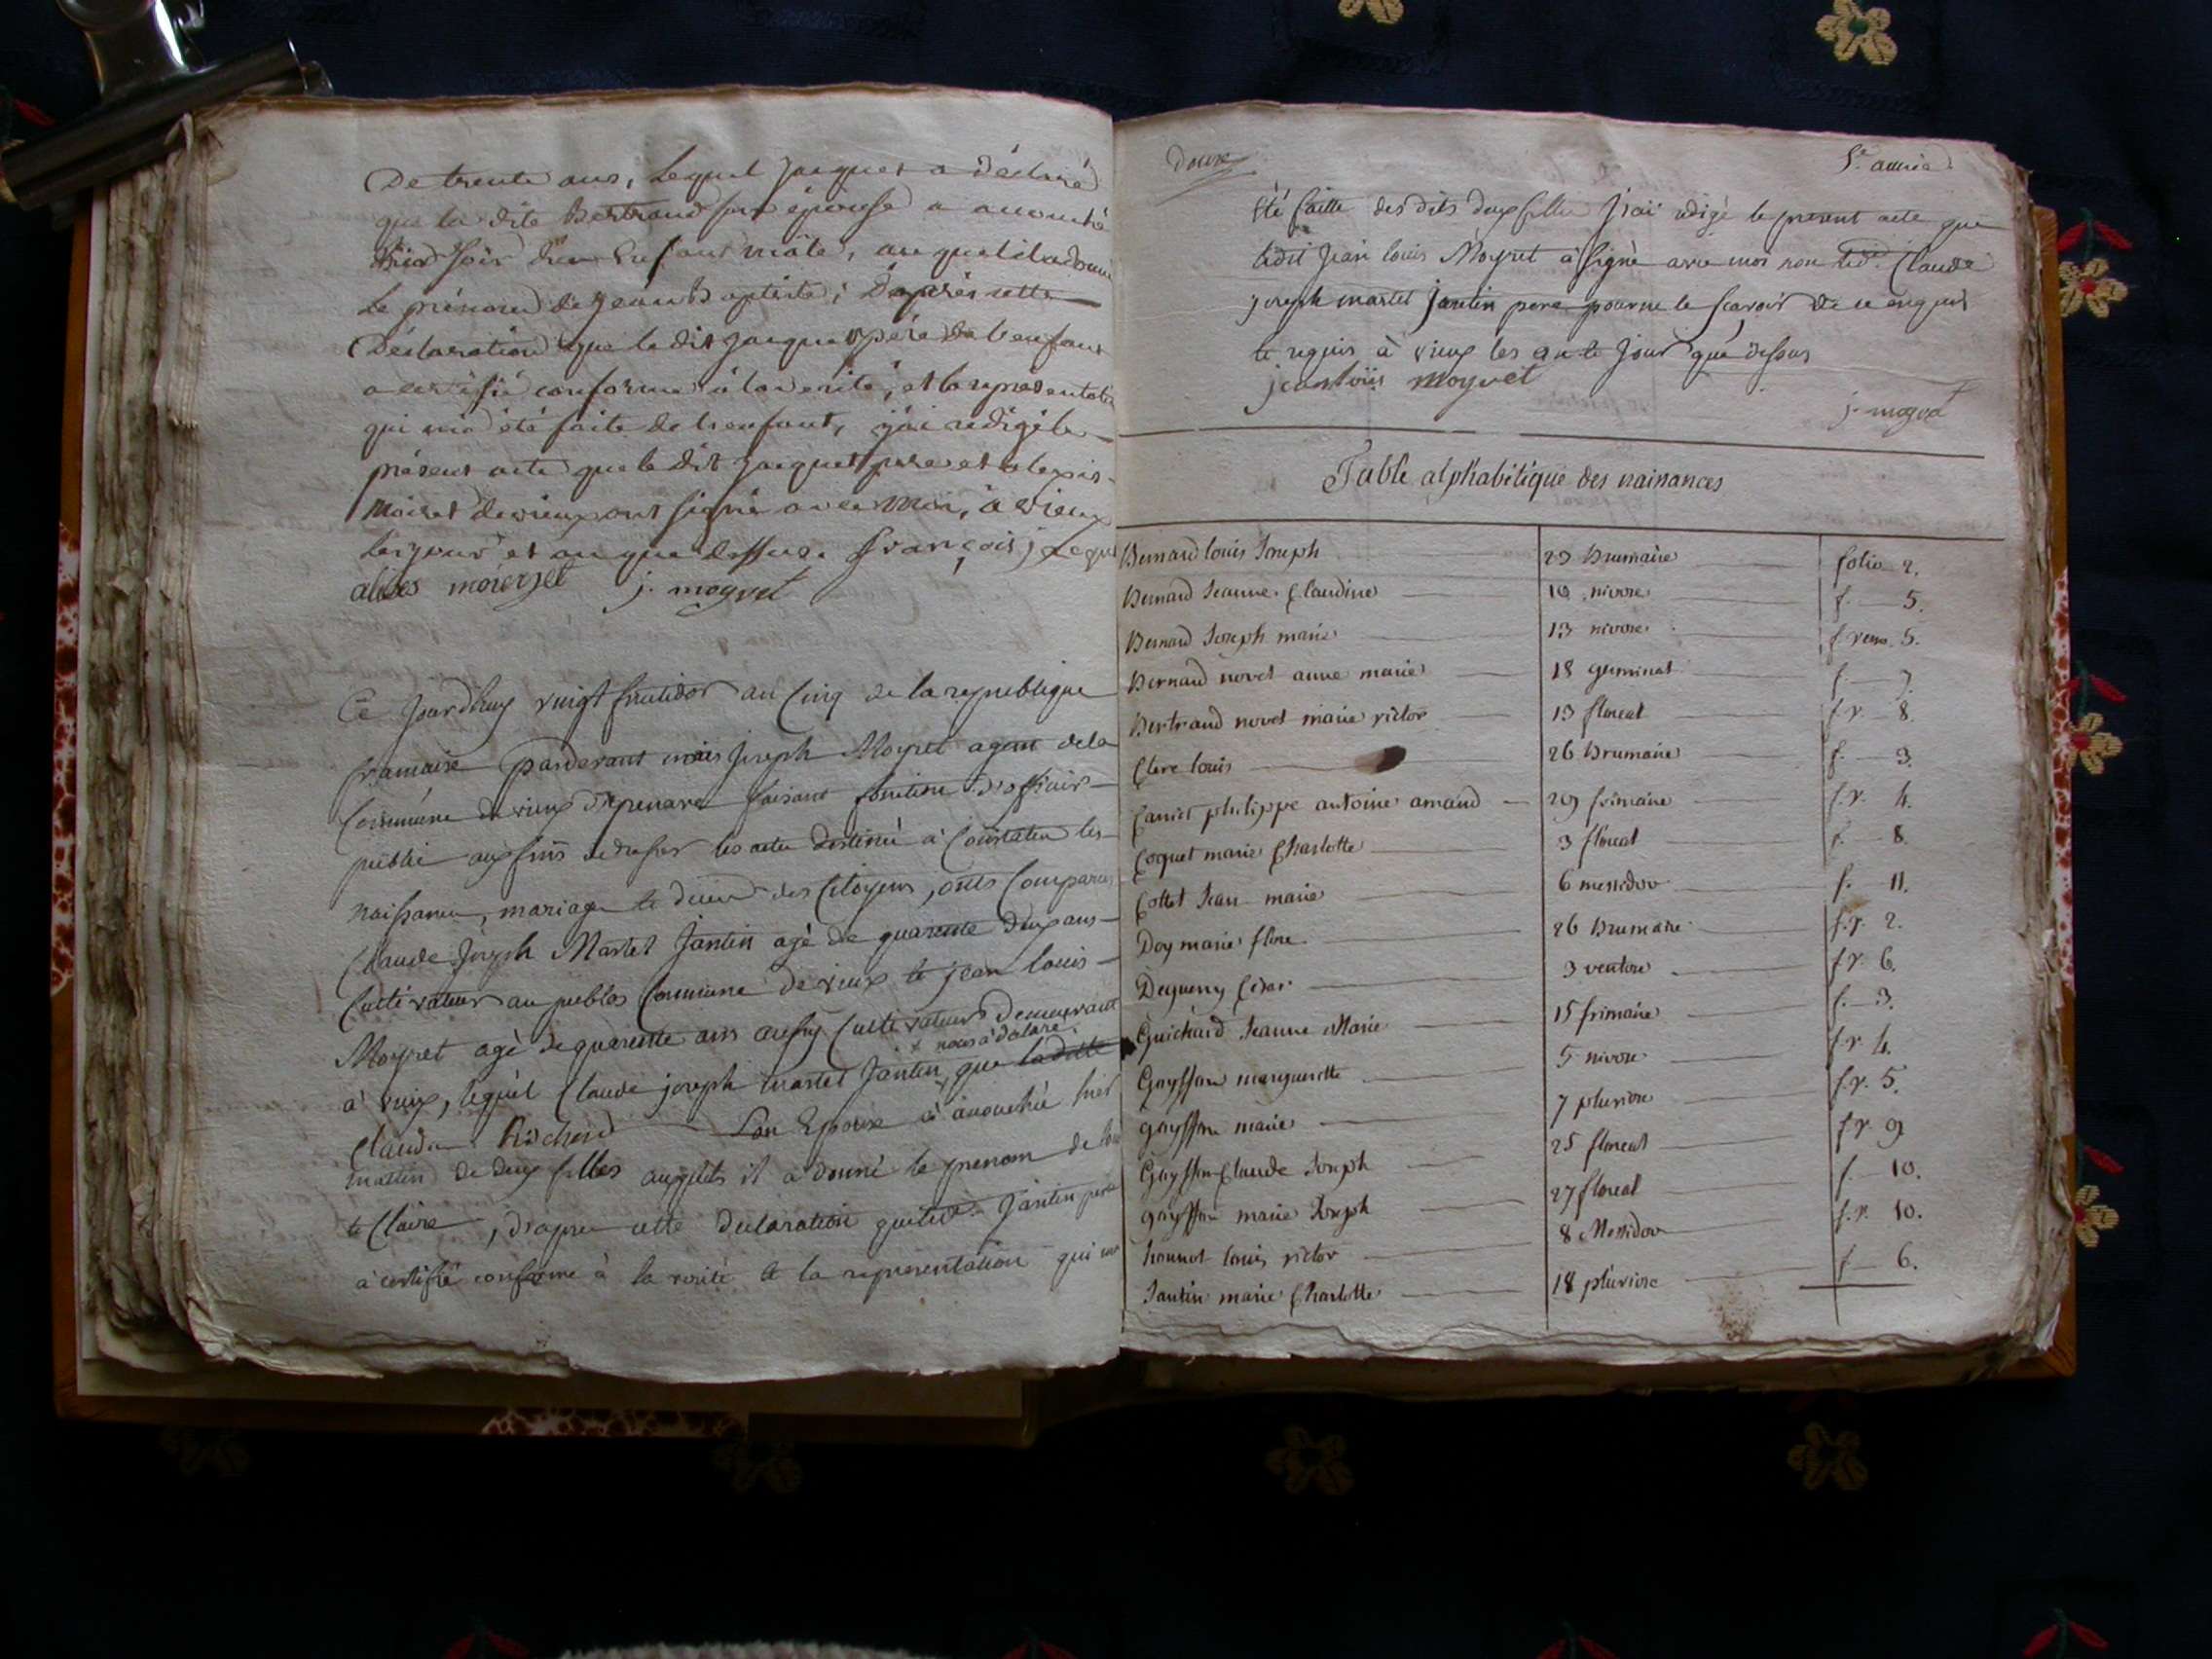 De trente ans, Lequel jacquet a déclaré
que la dite Bertrand son épouse a accouché
hier soir d'un Enfant mâle, au quel il a donné
Le prénom de jean Baptiste; D'après cette
Déclaration que le dit jacquet père de l'enfant
a certifié conforme à la verité, et la représentation
qui m'a été faite de l'enfant, j'ai rédigé le
présent acte que le dit jacquet père et alexis
Moiret de vieux ont signé avec Moi, à vieux
Les jour et an que dessus. françois jacquet
j. moyret
Ce jourdhuy vingt fructidor an Cinq de la republique
francaise pardevant mois joseph Moyret agent de la
Commune de vieux faisant fonction d'officier
public aux fins de dresser les actes destiné à Constater les
naissances, mariage et deces des Citoyens, onts Comparus
Claude joseph Martel Jantin agé de quarente deux ans
Cultivateur au Commune de vieux et jean louis
Moyret agé de quarente ans aussy Cultivateur demeurant
x nous à déclaré
à vieux, lequel Claude joseph martel Jantin x que la ditte
Claudi Rochend son Epouse à accouchée hier
mattin de deux filles auxquels il a donné le prenom de
et Claire, d'apres cette declaration que led. Jantin pere
à certifié conforme à la verité et la representation qui
Douze
5e année
été faitte des dits deux filles J'iai redigé le present acte que
ledit Jean louis Moyret a signé avec moi non led. Claude
joseph martel Jantin pere pour ne le scavoir de ce enquis
et requis à vieux les an et jour que dessus
jean loüis moyret
j. moyret
Table alphabétique des naissances
Bernard louis Joseph 29 Brumaire folio 2.
Bernard Jeanne Claudine 10 nivose f. 5.
Bernard Joseph marie 13 nivose f. verso 5.
Bernard novet anne marie 18 germinal f. 7.
Bertrand novet marie victor 13 floreal f. v. 8.
Clerc louis 26 Brumaire f. 3.
philippe antoine amand 29 frimaire f. v. 4.
Coquet marie Charlotte 3 floreal f. 8.
Cottet Jean marie 6 messidor f. 11.
Doy marie flore 26 Brumaire f. v. 2.
Degueny Cesar 3 ventose f. v. 6.
Guichard Jeanne Marie 15 frimaire f. 3.
Gaysson marguerite 5 nivose f. v. 4.
gaysson marie 7 pluviose f. v. 5.
Gaysson Claude Joseph 25 floreal f. v. 9
gaysson marie Joseph 27 floreal f. 10.
hannot louis victor 8 Messidor f. v. 10.
Jantin marie Charlotte 18 pluviose f. 6.